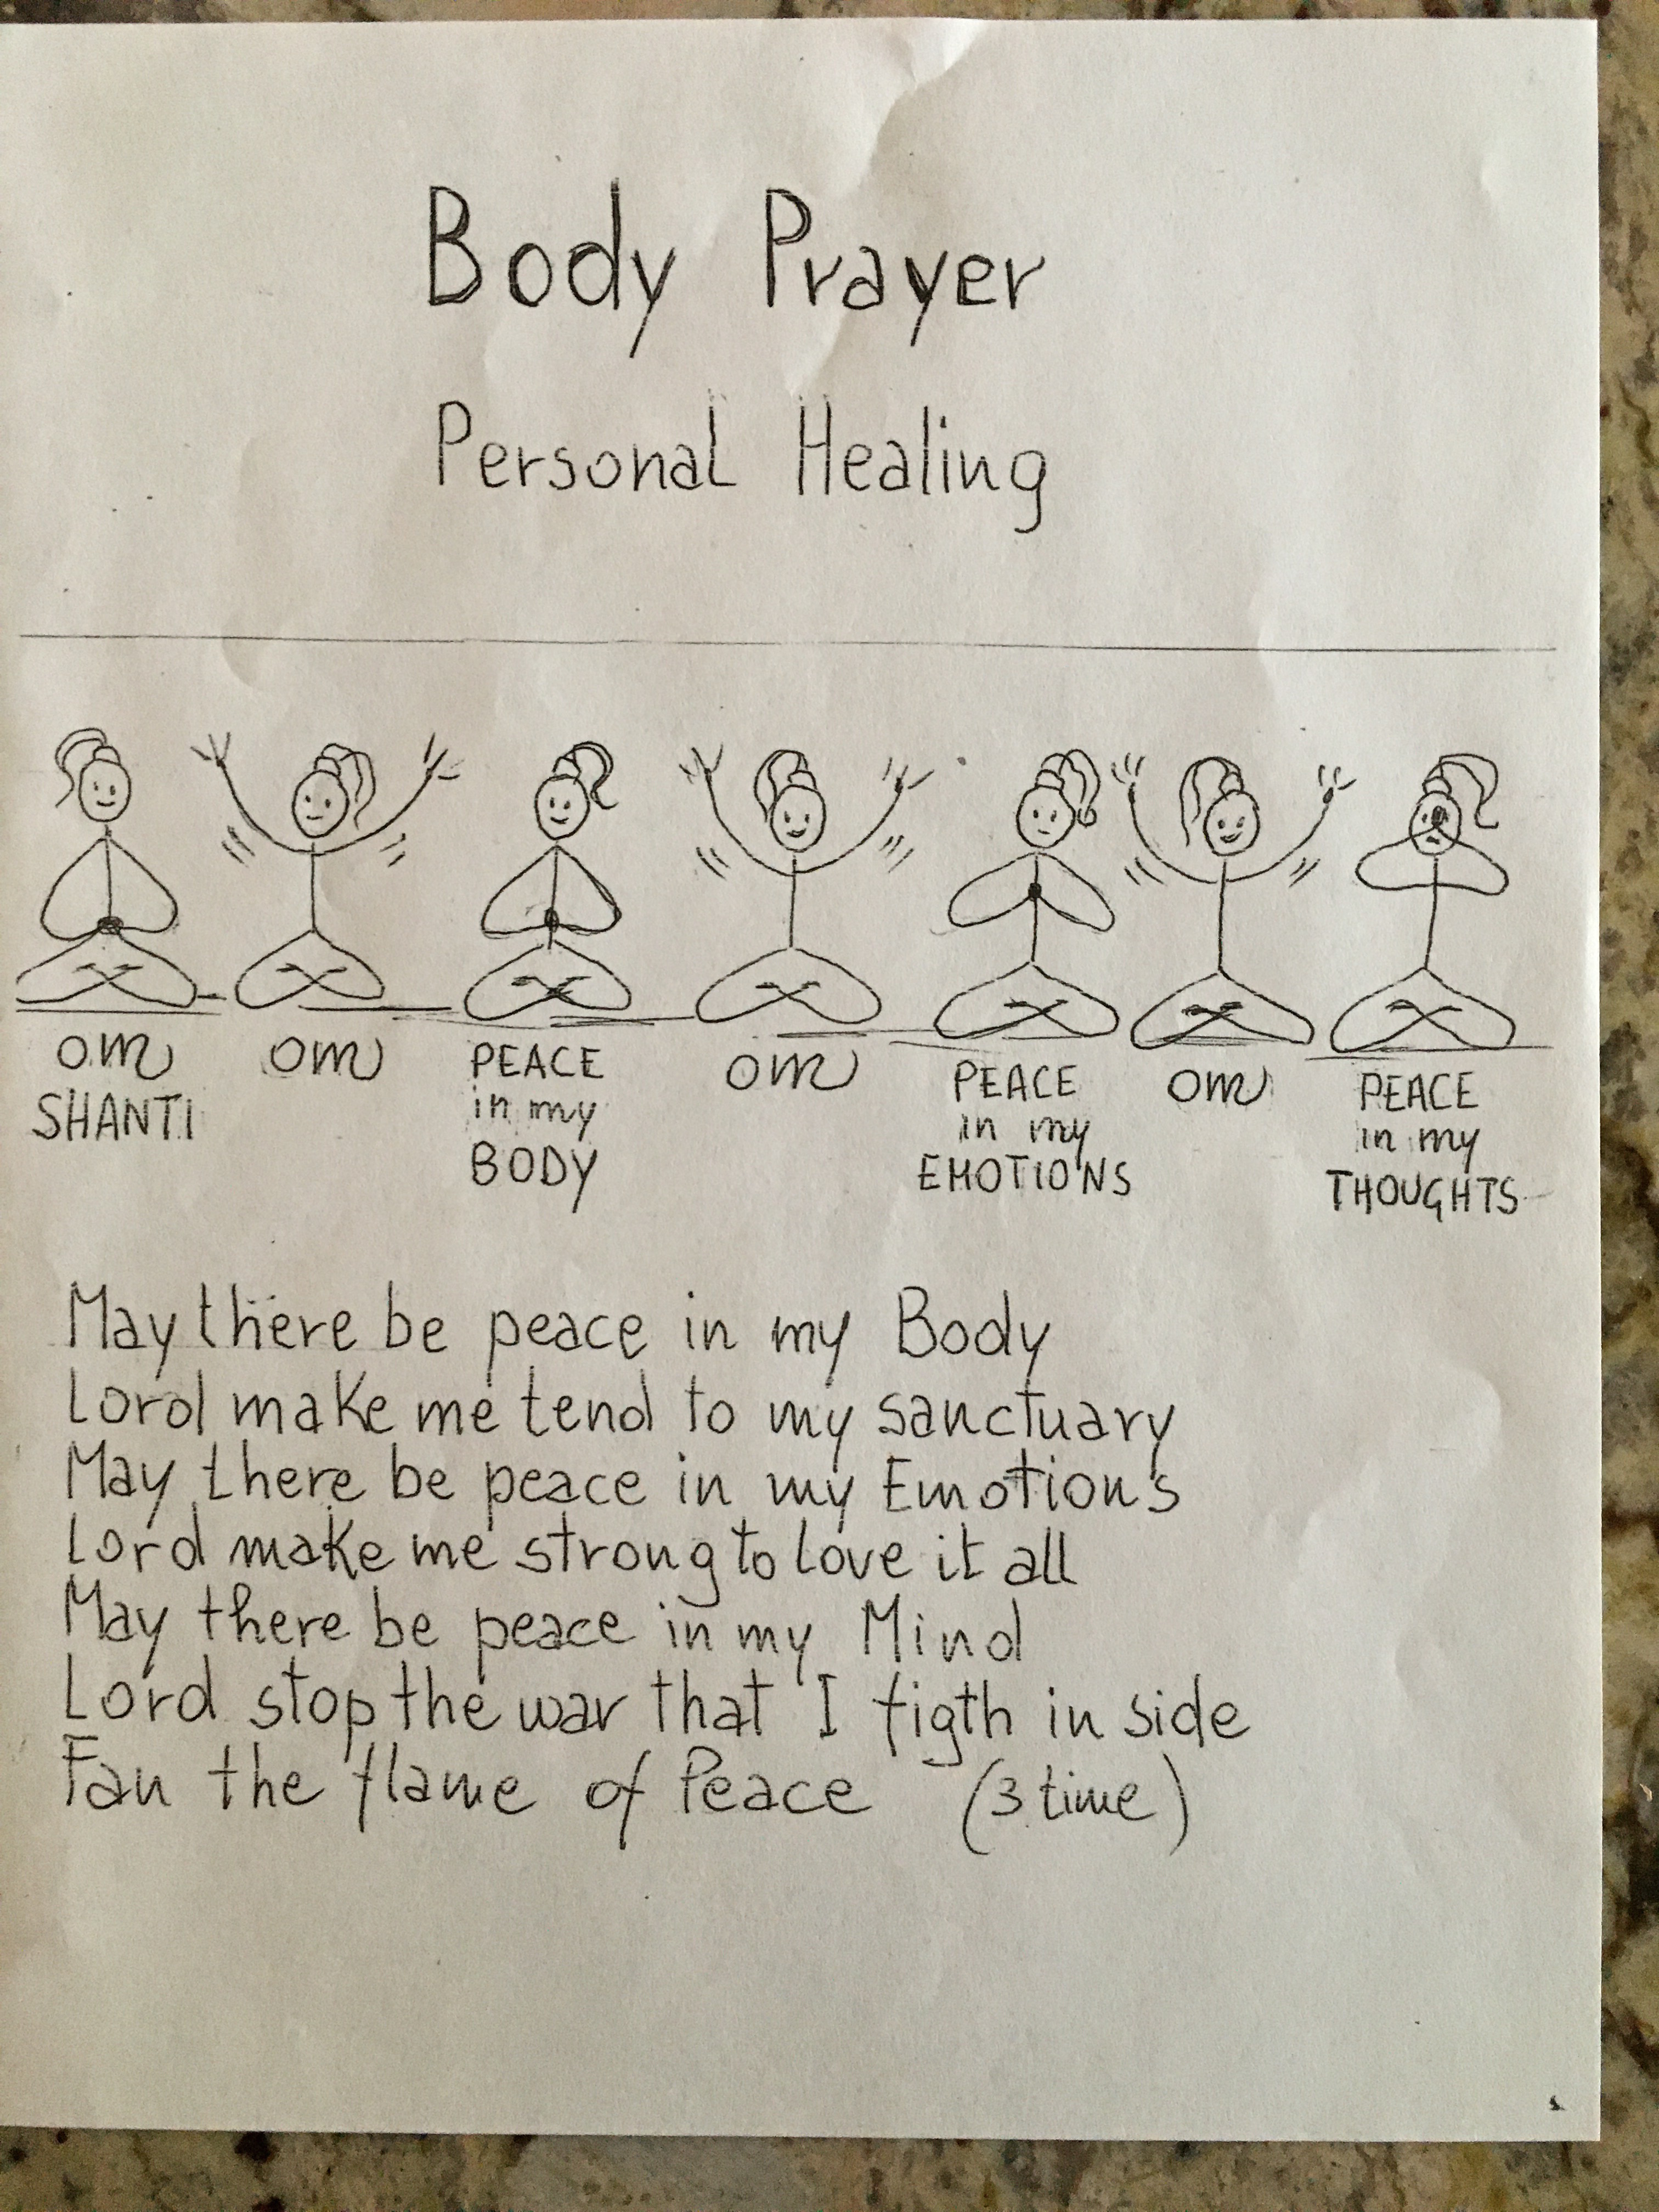 Body Prayer
Personal Healing
OM SHANTI
OM
PEACE in my BODY
OM
PEACE in my EMOTIONS
OM
PEACE in my THOUGHTS
May there be peace in my Body
Lord make me tend to my sanctuary
May there be peace in my Emotions
Lord make me strong to love it all
May there be peace in my Mind
Lord stop the war that I figth in side
Fan the flame of Peace (3 time)